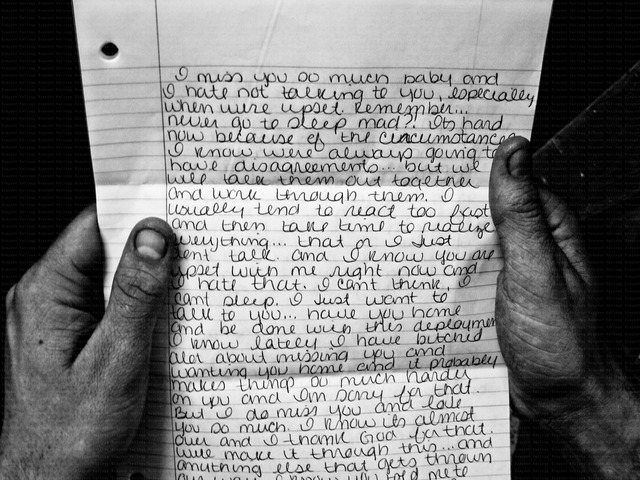 I miss you so much baby and
I hate not talking to you, especially
when were upset. Remember...
never go to sleep mad?! Its hard
now because of the circumstances
I know were always going to
have disagreements... but we
will talk them out together
and work through them. I
usually tend to react too fast
and then take time to realize
everything... that or I Just
dont talk. and I know you are
upset with me right now and
I hate that. I cant think, I
cant sleep. I Just want to
talk to you... have you home
and be done with this deployment
I know lately I have bitched
alot about missing you and
wanting you home and it probably
makes things so much harder
on you and Im sorry for that.
But I do miss you and love
you so much. I know its almost
over and I thank God for that.
we will make it through this... and
anything else that gets thrown
our way. I know you told me to